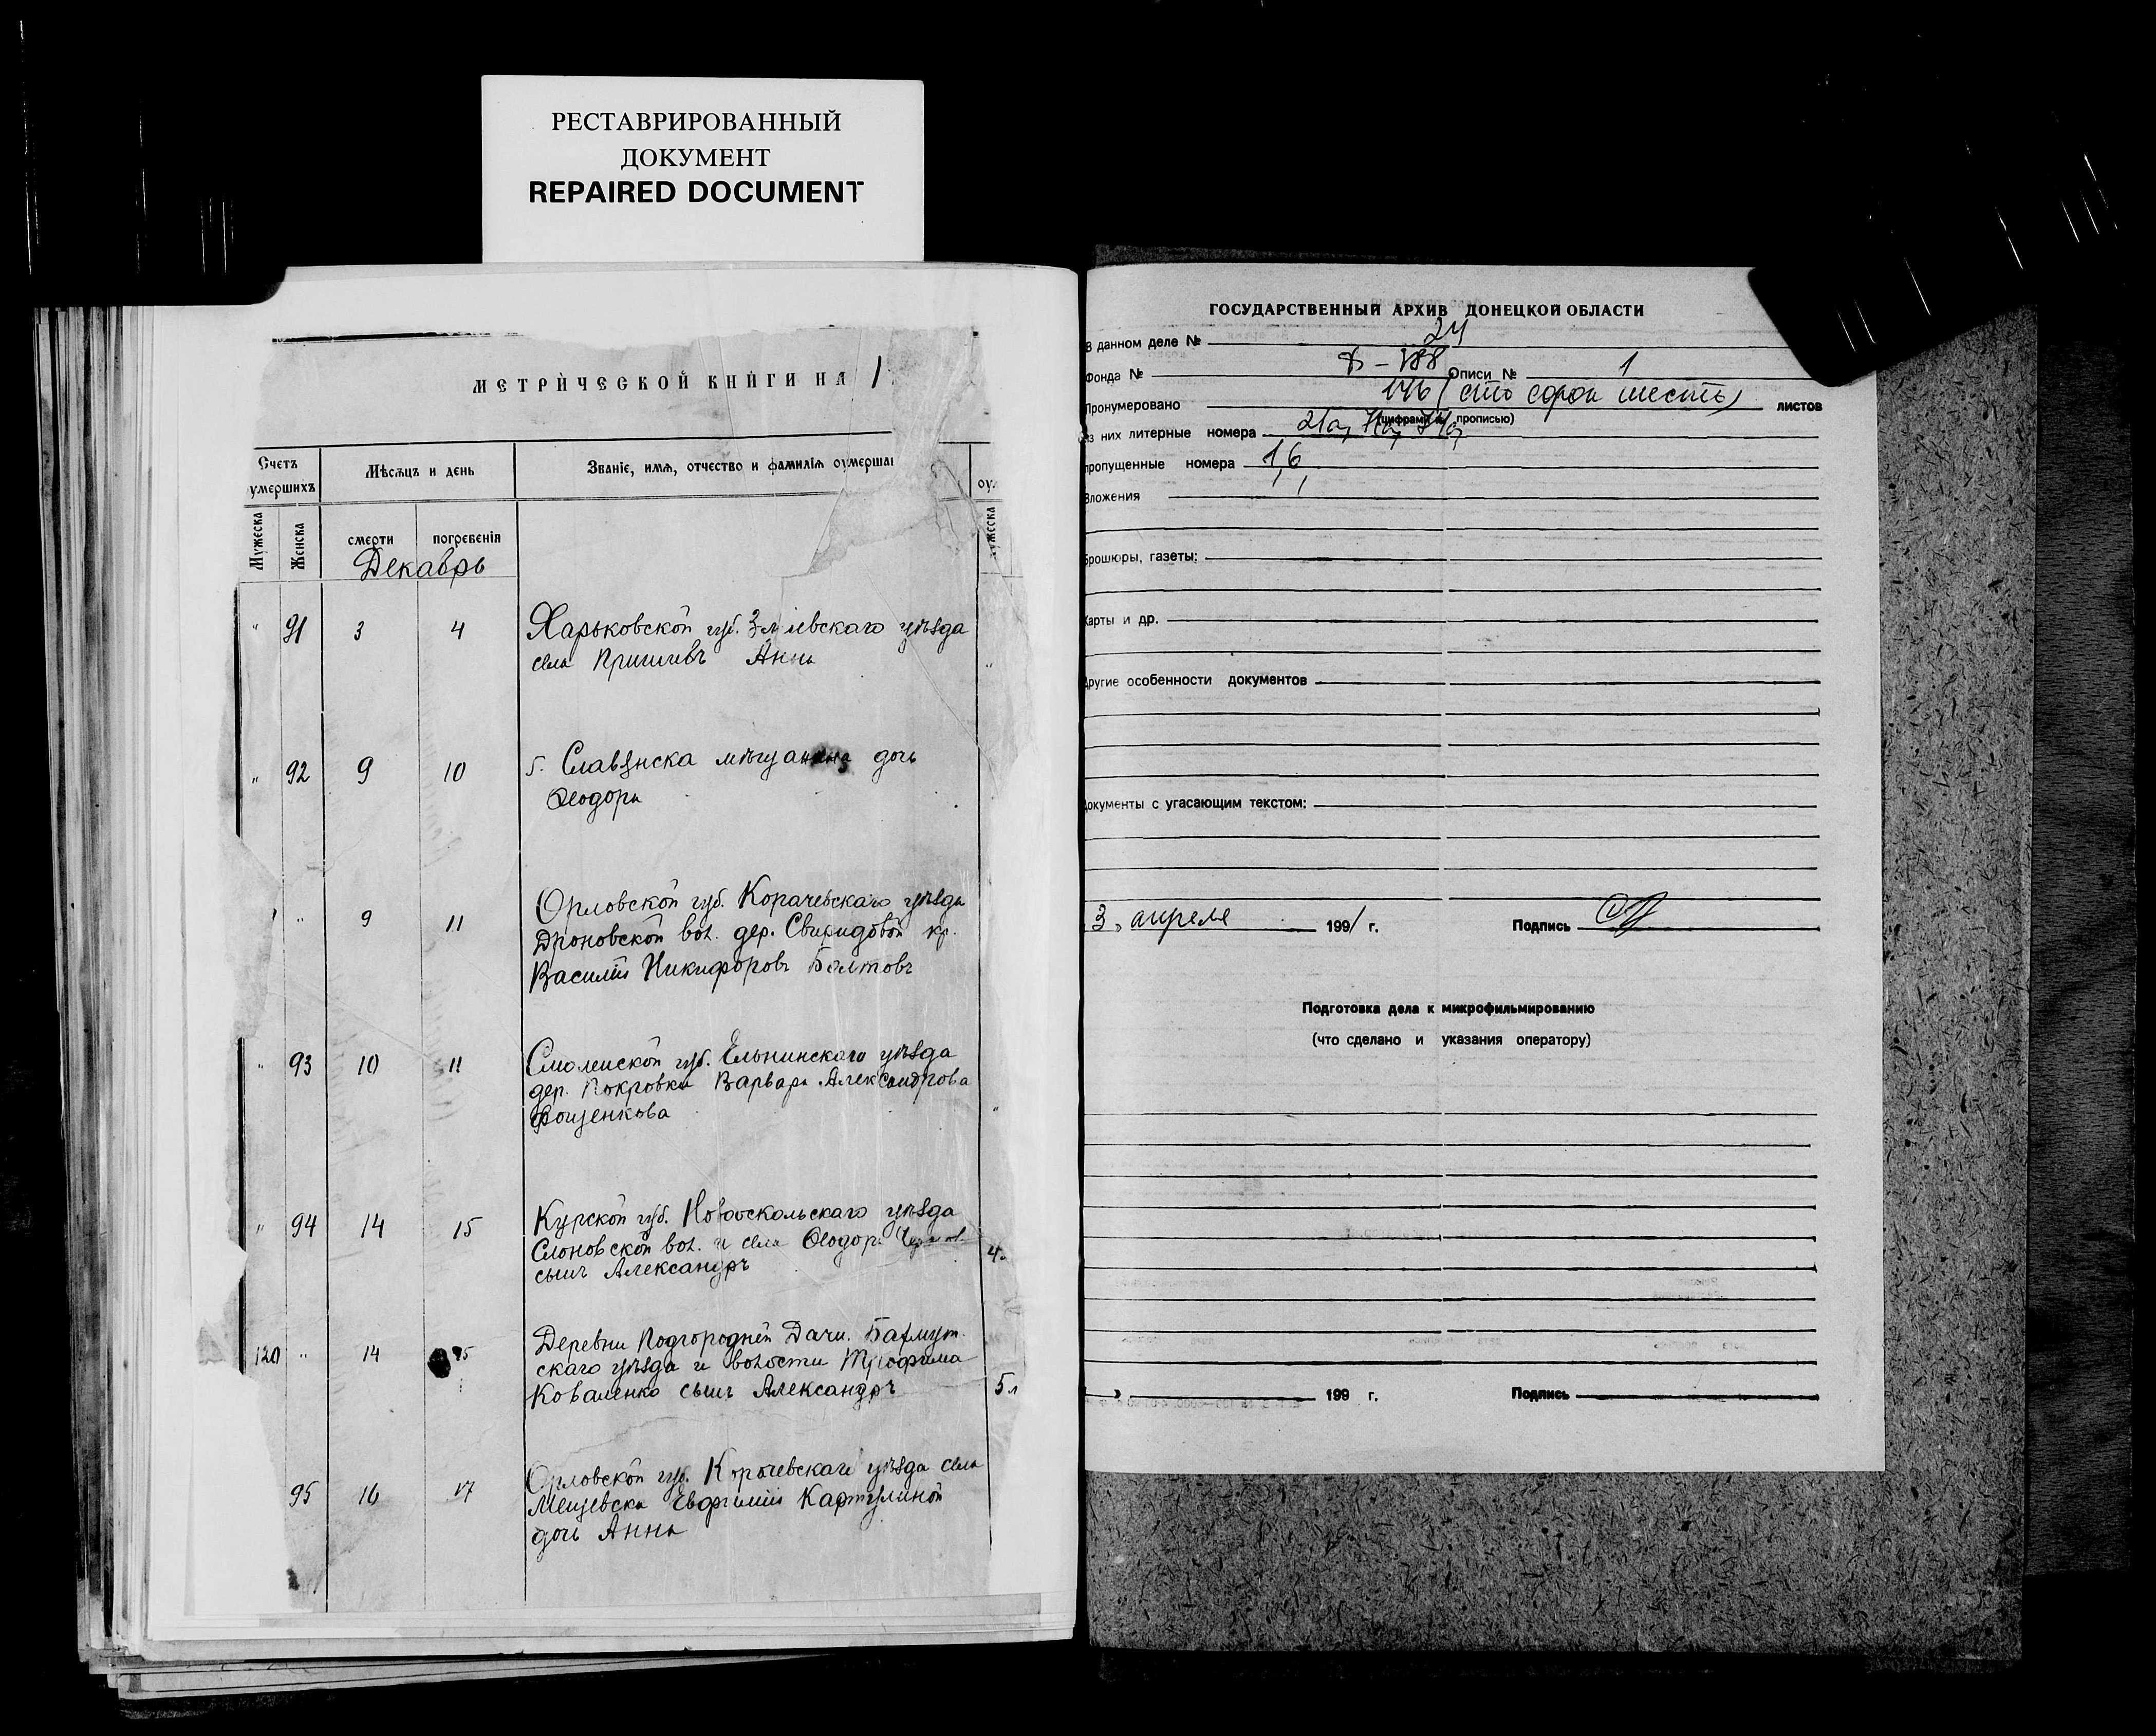 РЕСТАВРИРОВАННЫЙ
ДОКУМЕНТ
REPAIRED DOCUMENT
МЕТРИЧЕСКОЙ КНИГИ НА 1
Счетъ умершихъ
Мѣсяцъ и день
Званіе, имя, отчество и фамилія оумерша
оу
Мужеска
Женска
смерти
погребенія
ужеска
Декабрь
" 91 3 4 Харьковской губ. Зміевскаго уѣзда
села Пришивъ Анна
" 92 9 10 г. Славянска мѣщанина дочь
Ѳеодора
" 9 11 Орловской губ. Корачевскаго уѣзда
Дроновской вол. дер. Свиридовой кр.
Василій Никифоровъ Болтовъ
" 93 10 11 Смоленской губ. Ельнинскаго уѣзда
дер. Покровки Варвара Александрова
Фощенкова
" 94 14 15 Курской губ. Новооскольскаго уѣзда
Слоновской вол. и села Ѳеодора
сынъ Александръ
120 " 14 15 Деревни Подгородней Дачи. Бахмут-
скаго уѣзда и волости Трофима
Коваленко сынъ Александръ 5 л
95 16 17 Орловской губ. Корачевскаго уѣзда села
Мещевска Евфиміи Картулиной
дочь Анна
ГОСУДАРСТВЕННЫЙ АРХИВ ДОНЕЦКОЙ ОБЛАСТИ
В данном деле № 24
Фонда № Описи № 1
Пронумеровано 146 (сто сорок шесть) листов
(цифрами и прописью)
из них литерные номера 21а,
пропущенные номера 1, 6,
Вложения
Брошюры, газеты:
Карты и др.
Другие особенности документов
Документы с угасающим текстом:
3 " апреля 1991 г. Подпись
Подготовка дела к микрофильмированию
(что сделано и указания оператору)
" 199 г. Подпись